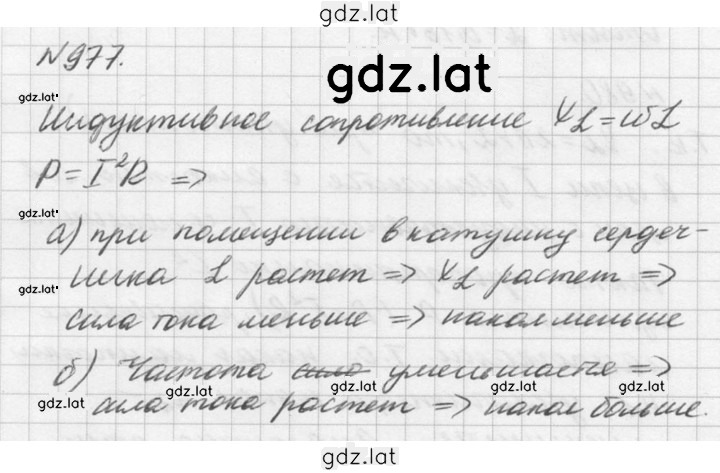 gdz.lat
N977.
gdz.lat
gdz.lat
Индуктивное сопротивление XL=ωL
P=I²R =>
gdz.lat
а) при помещении в катушку сердеч-
ника L растет => XL растет =>
gdz.lat
сила тока меньше => накал меньше
б) Частота сило уменьшается =>
gdz.lat gdz.lat gdz.lat gdz.lat
сила тока растет => накал больше.
gdz.lat